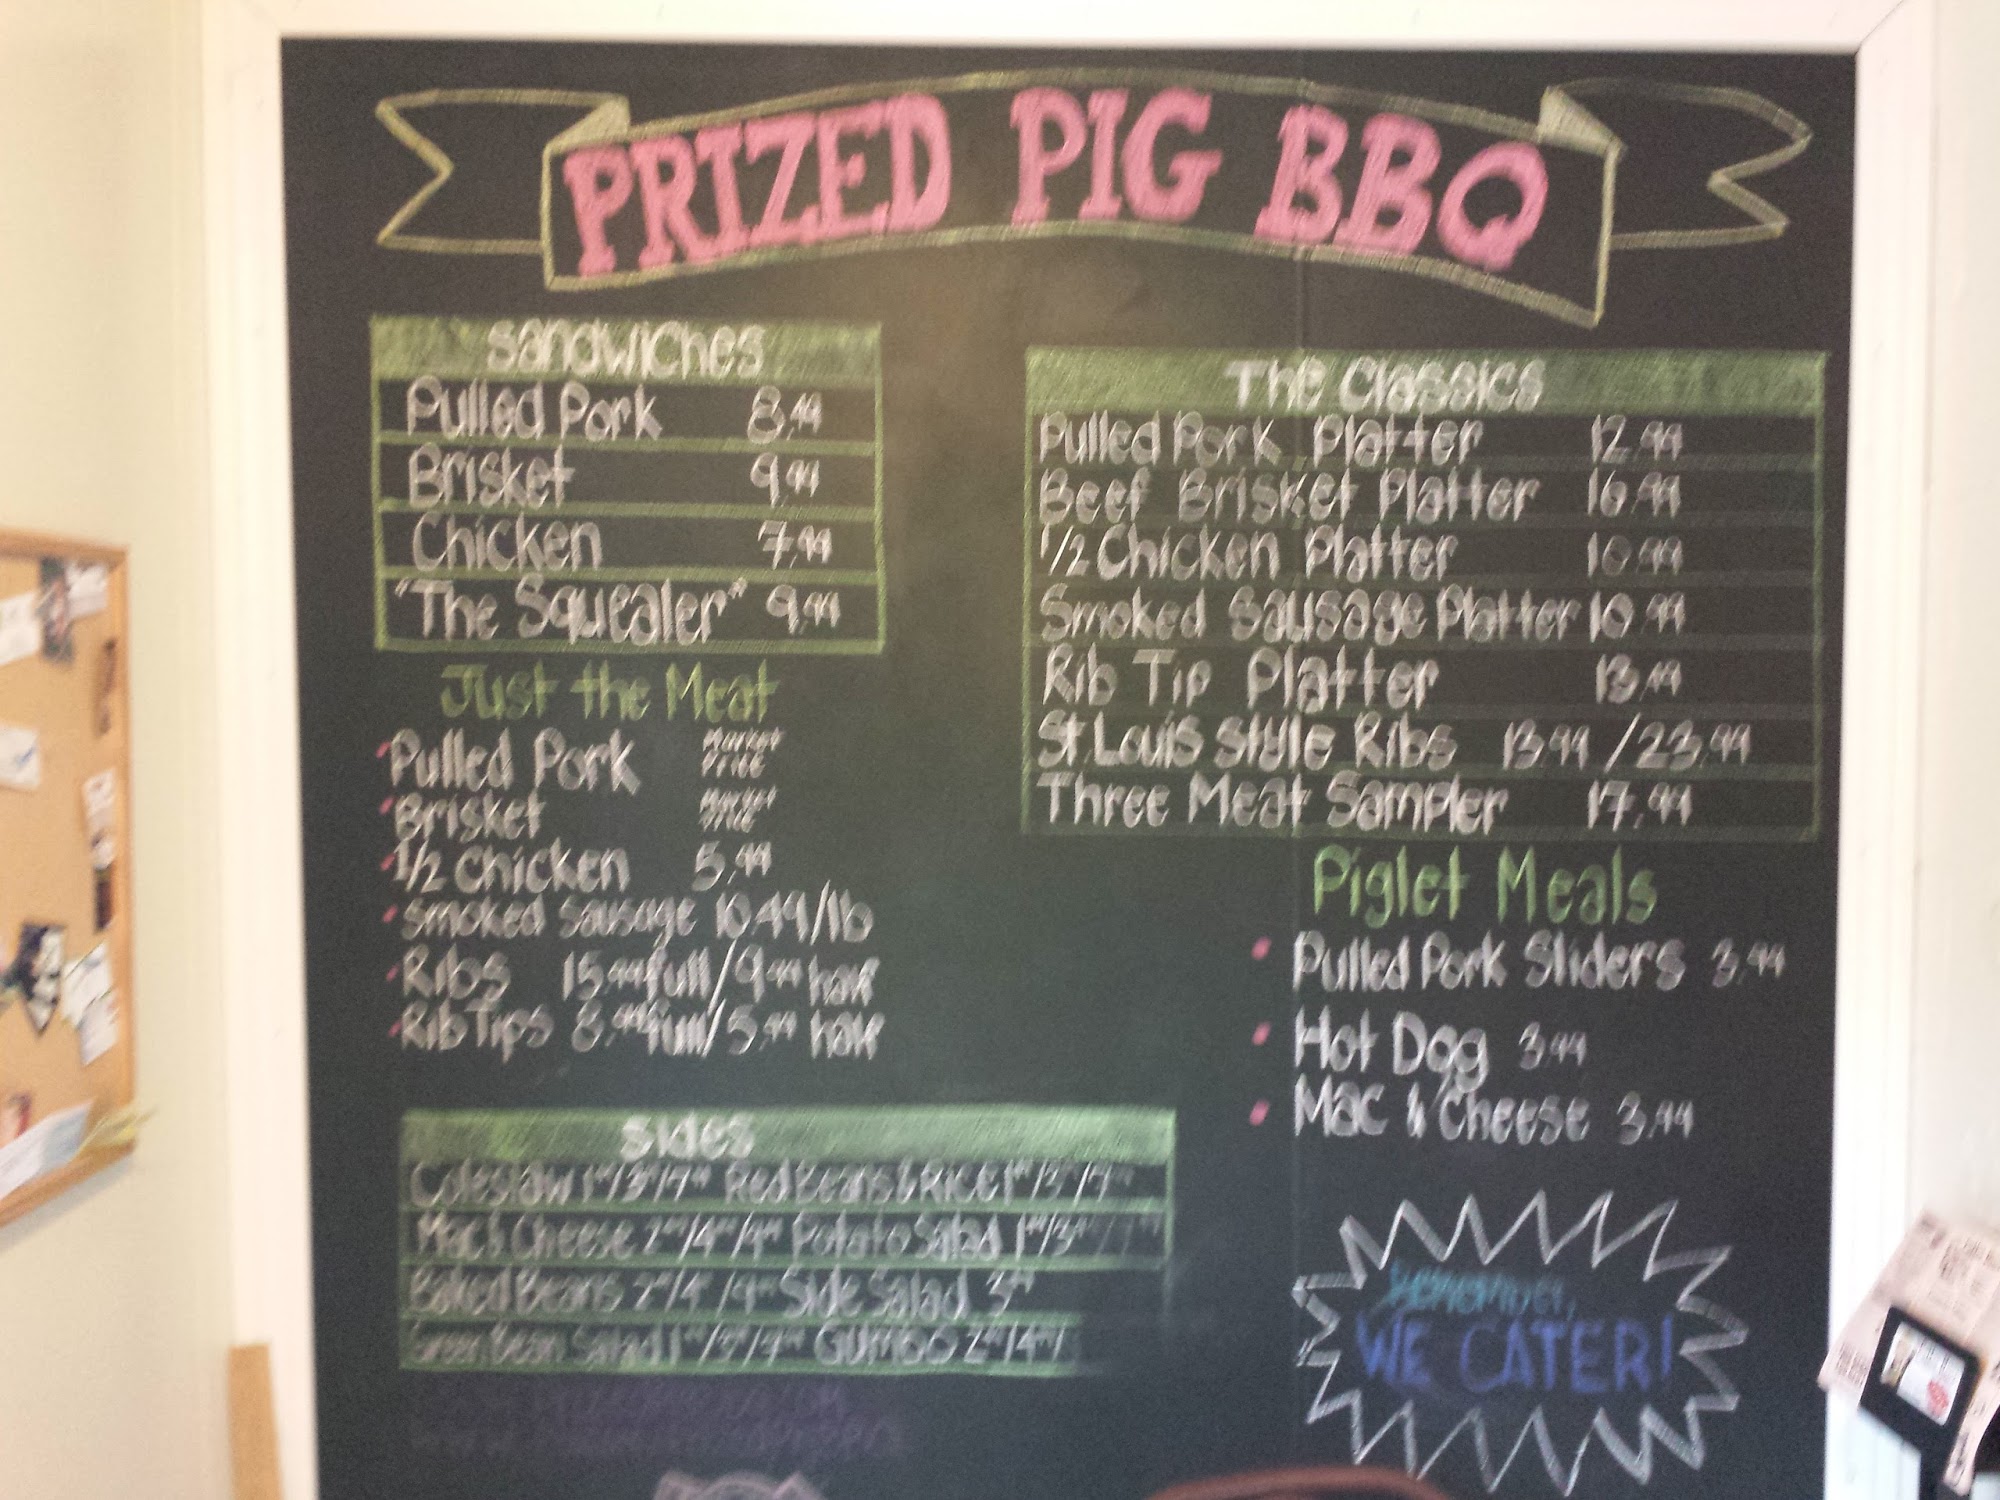 PRIZED PIG BBQ
Sandwiches
Pulled Pork 8.99
Brisket 9.99
Chicken 7.99
"The Squealer" 9.99
Just the Meat
Pulled Pork Market Price
Brisket Market Price
1/2 Chicken 5.99
Smoked Sausage 10.49/lb
Ribs 15.99 full/9.99 half
Rib Tips 8.99 full/5.99 half
The Classics
Pulled Pork Platter 12.99
Beef Brisket Platter 16.99
1/2 Chicken Platter 10.99
Smoked Sausage Platter 10.99
Rib Tip Platter 13.49
St. Louis Style Ribs 13.99 / 23.99
Three Meat Sampler 17.99
Piglet Meals
Pulled Pork Sliders 3.99
Hot Dog 3.99
Mac & Cheese 3.99
Sides
Coleslaw Red Beans & Rice
Mac & Cheese Potato Salad
Baked Beans Side Salad
Green Bean Salad Gumbo
Remember,
WE CATER!